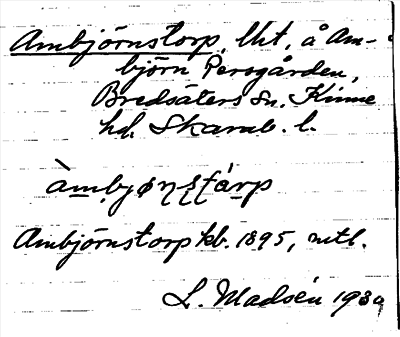 Ambjörnstorp, lht, å Am-
björn Persgården,
Bredsäters sn. Kinne
hd. Skarab. l.
àmbjøṇṣtárp
Ambjörnstorp kb. 1895, mtl.
L. Madsén 1930